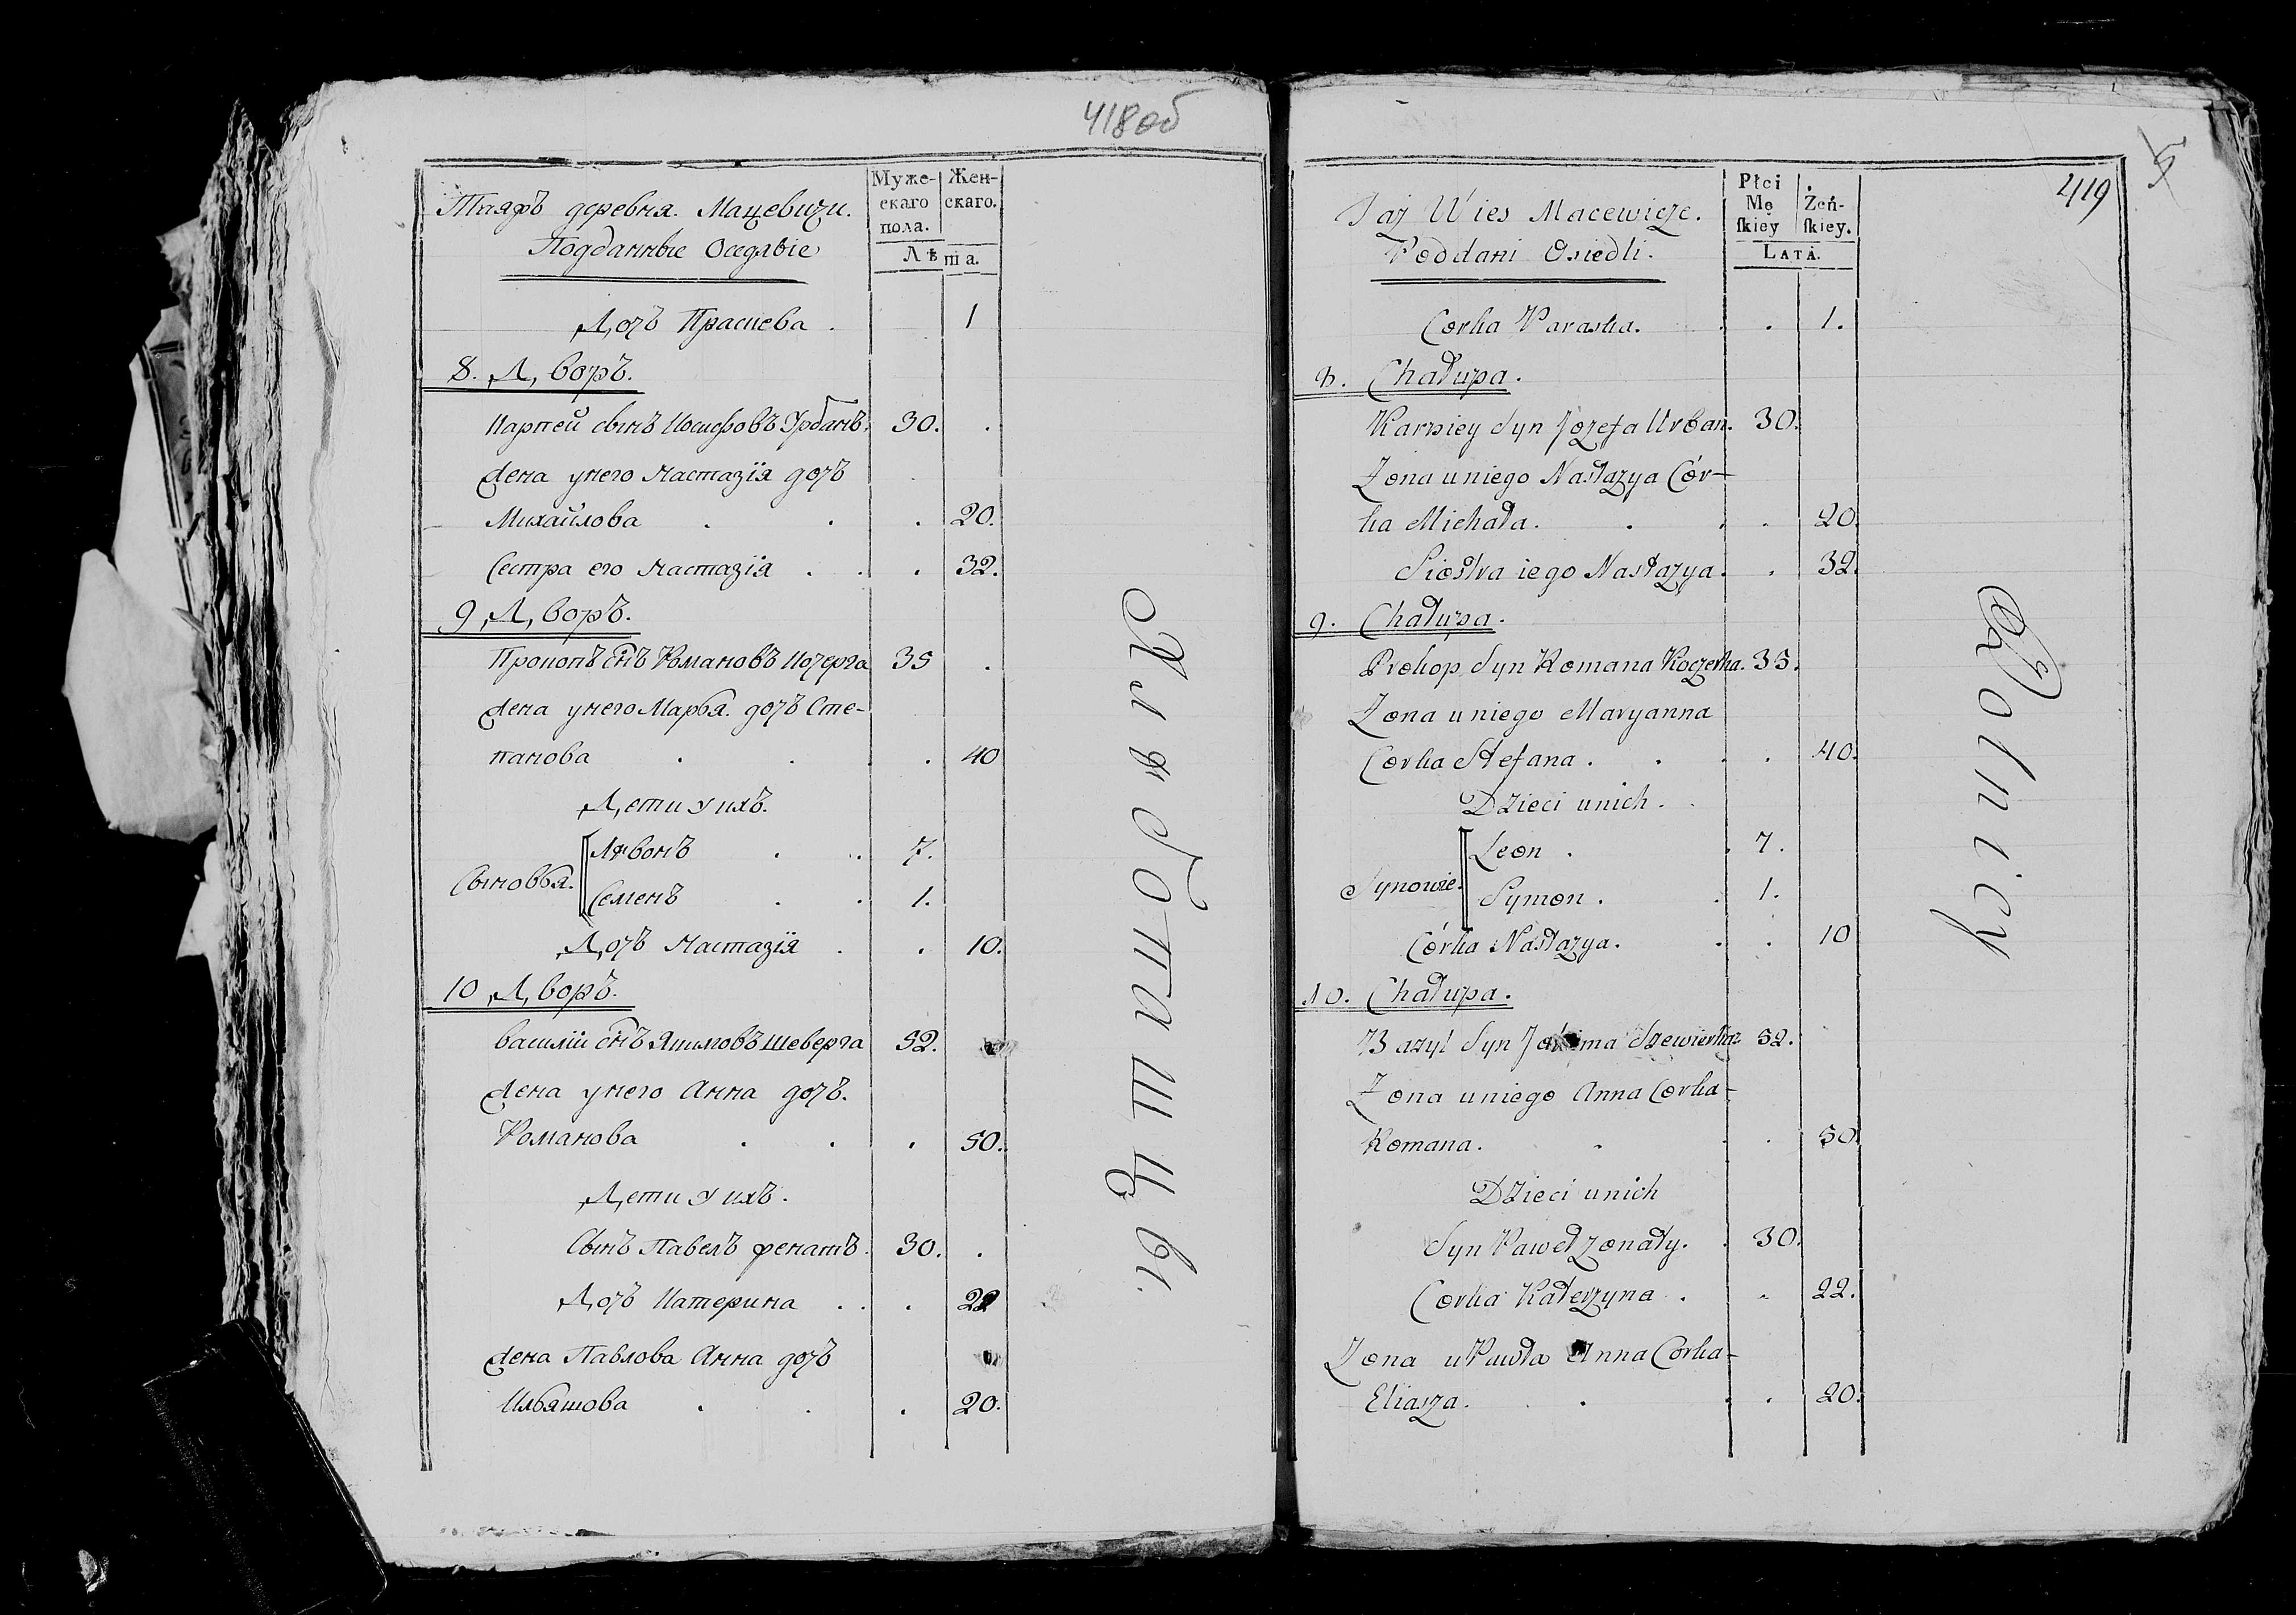 418об
Таяжъ деревня. Мацевичи.
Подданные Оседлые
Муже-
скаго
пола.
Жен-
скаго.
Лѣта.
Дочь Праскева . 1
8. Дворъ.
Карпей сынъ Иосифовъ Урбанъ. 30. .
Жена унего Настазїя дочь
Михайлова . . . 20.
Сестра его Настазїя . . . 32.
9 Дворъ.
Прокопъ снъ Романовъ Кочерга 35 .
Жена унего Марья. дочь Сте-
панова . . . . 40
Дети у ихъ.
Сыновья.
Левонъ . . 7.
Семенъ . . 1.
Дочь Настазїя . . 10.
10 Дворъ.
Василiй снъ Якимовъ Шеверга 52.
Жена унего Анна дочь.
Романова . . . 50.
Дети у ихъ.
Сынъ Павелъ женатъ. 30. .
Дочь Катерина . . . 22
Жена Павлова Анна дочь
Ильяшова . . . 20.
Работницы.
5
419
Taż Wies Macewicze.
Poddani Osiedli.
Płci
Mę
skiey
Żeń-
skiey.
LATA.
Corka Paraska. . . 1.
8. Chałupa.
Karpiey Syn Jozefa Urban. 30.
Zona uniego Nastazya Cór-
ka Michała. . . . 20.
Siostra iego Nastazya. . 32.
9. Chałupa.
Prokop Syn Romana Koczerha. 35.
Zona uniego Maryanna
Corka Stefana . . . . 40.
Dzieci unich.
Synowie.
Leon . . 7.
Symon . . 1.
Córka Nastazya. . . 10
10. Chałupa.
Bazyl Syn Jakima Szewierha 52.
Zona uniego Anna Corka-
Romana. . . . 50.
Dzieci unich
Syn Paweł zonaty. . 30.
Corka Katerzyna . . 22.
Zona u Pawła Anna Corka-
Eliasza. . . . 20.
Rolnicy